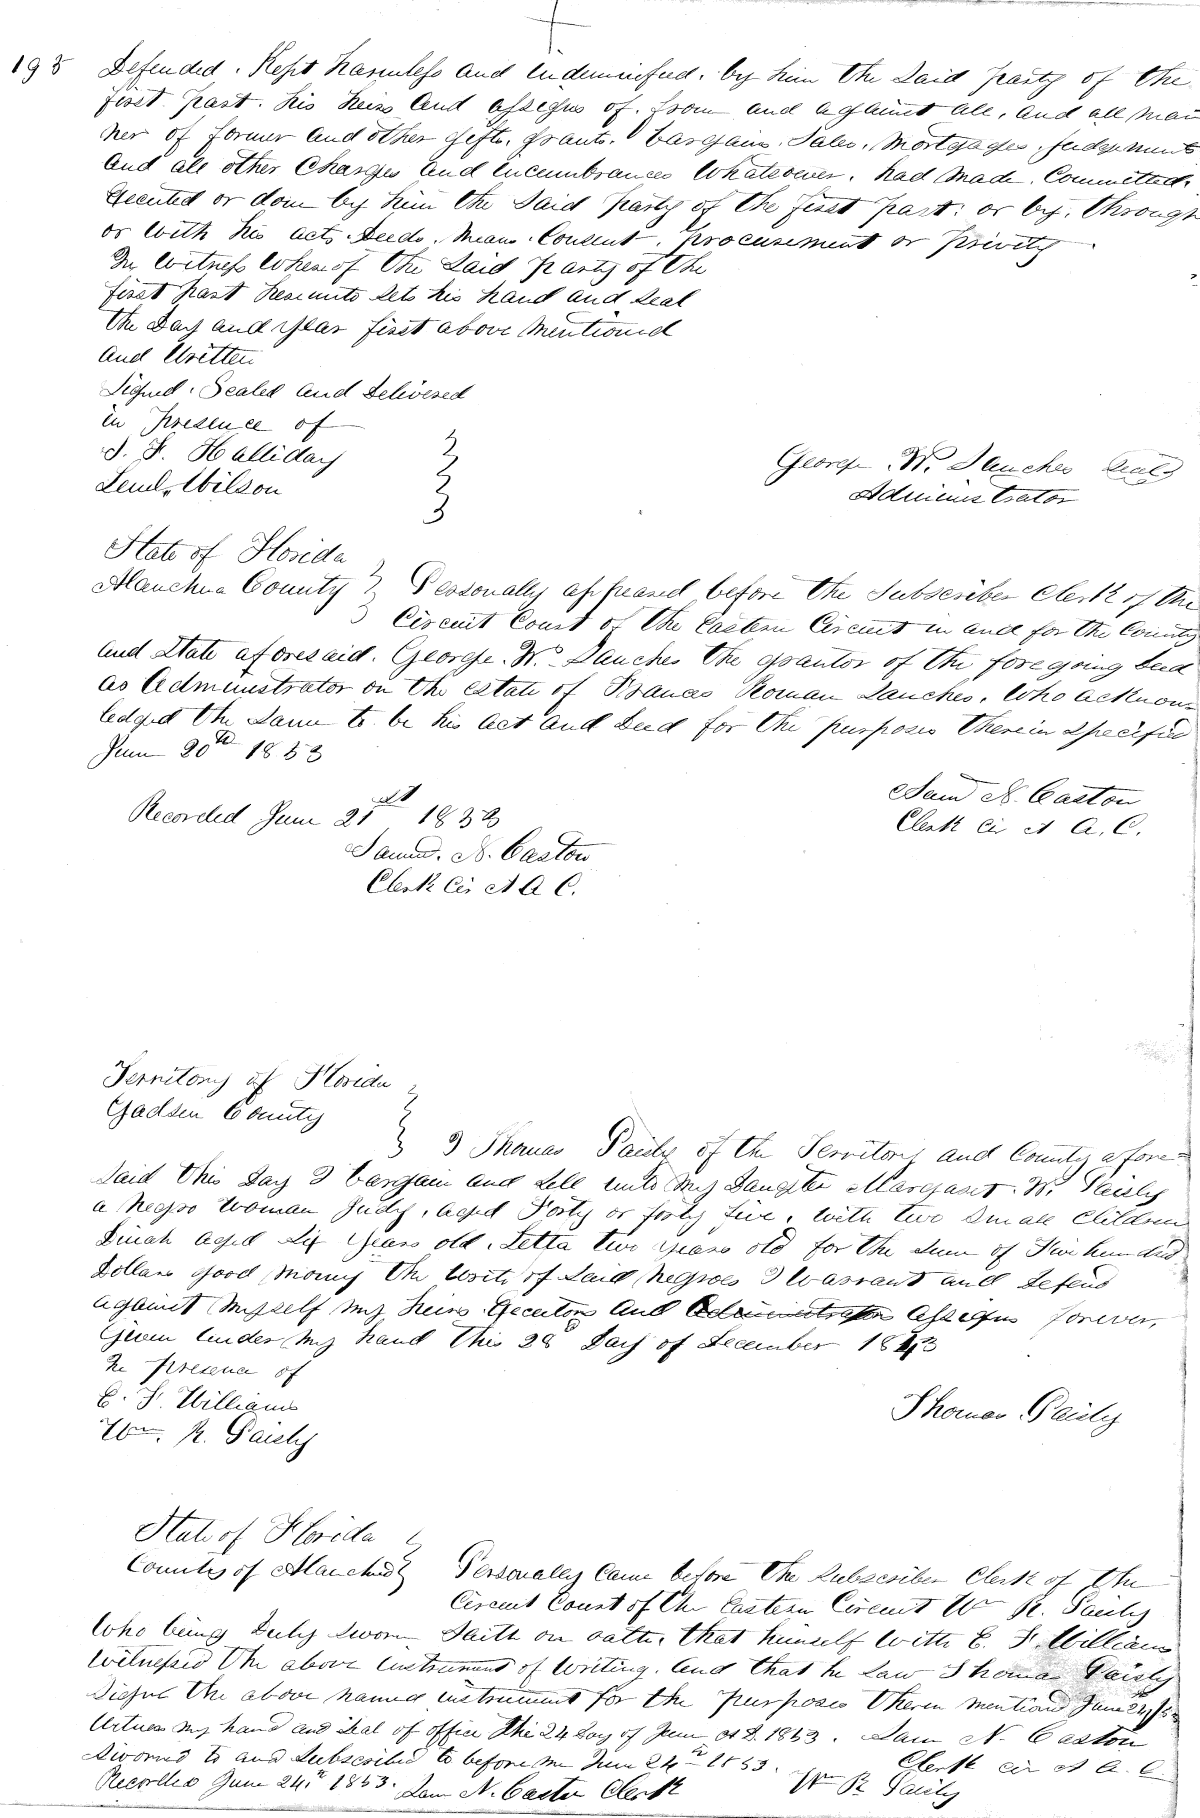 193 Defended. Kept harmless and indemnified. by him the Said party of the
first part. his heirs and assigns of. from and against all. and all man
ner of former and other gifts. grants. bargains. Sales. Mortgages. Judgments
and all other Charges and incumbrances Whatsoever. had made. Committed.
Executed or done by him the Said party of the first part. or by. through
or with his acts. deeds. Means. Consent. procurement or privity
In Witness Whereof the Said party of the
first part hereunto Sets his hand and Seal
the Day and Year first above Mentioned
and Written
Signed. Sealed and Delivered
in presence of
S. F. Halliday
Leml. Wilson
George. W. Sanches Seal
Administrator
State of Florida
Alanchua County Personally appeared before the Subscriber Clerk of the
Circuit Court of the Eastern Circuit in and for the County
and State aforesaid. George. W. Sanches the grantor of the foregoing deed
as Administrator on the estate of Francis Roman Sanches. Who acknow-
ledged the Same to be his act and deed for the purposes therein Specified
June 20th 1853
Saml N. Caston
Clerk Cir Ct A. C.
Recorded June 21st 1853
Samul. N. Caston
Clerk Cir Ct A C.
Territory of Florida
Gadsen County
I Thomas Paisly of the Territory and County afore=
Said this Day I bargain and Sell unto My Daughter Margaret. W. Paisly
a Negro Woman Judy, aged Forty or forty five, with two Small Children
Dinah aged Six years old. Letta two years old for the Sum of Five hundred
Dollars good Money the Write of Said Negroes I Warrant and Defend
against Myself my heirs Executors and Administrators assigns forever,
Given Under My hand this 28 Day of December 1843
In presence of
E. F. Williams
Wm. R. Paisly
Thomas Paisly
State of Florida
County of Alanchua Personally Came before the Subscriber Clerk of the
Circuit Court of the Eastern Circuit Wm R. Paisly
Who being Duly Sworn Saith on oath, that himself With E. F. Williams
Witnessed the above instrument of Writing. and that he Saw Thomas Paisly
Signe the above named instrument for the purposes therein mentiond June 24th
Witness my hand and Seal of office this 24 Day of June A D. 1853. Sam N. Caston
Clerk cir Ct A. C.
Sworned to and Subscribed to before me June 24th 1853.
Wm R Paisly
Recorded June 24th 1853. Sam N. Caston Clerk